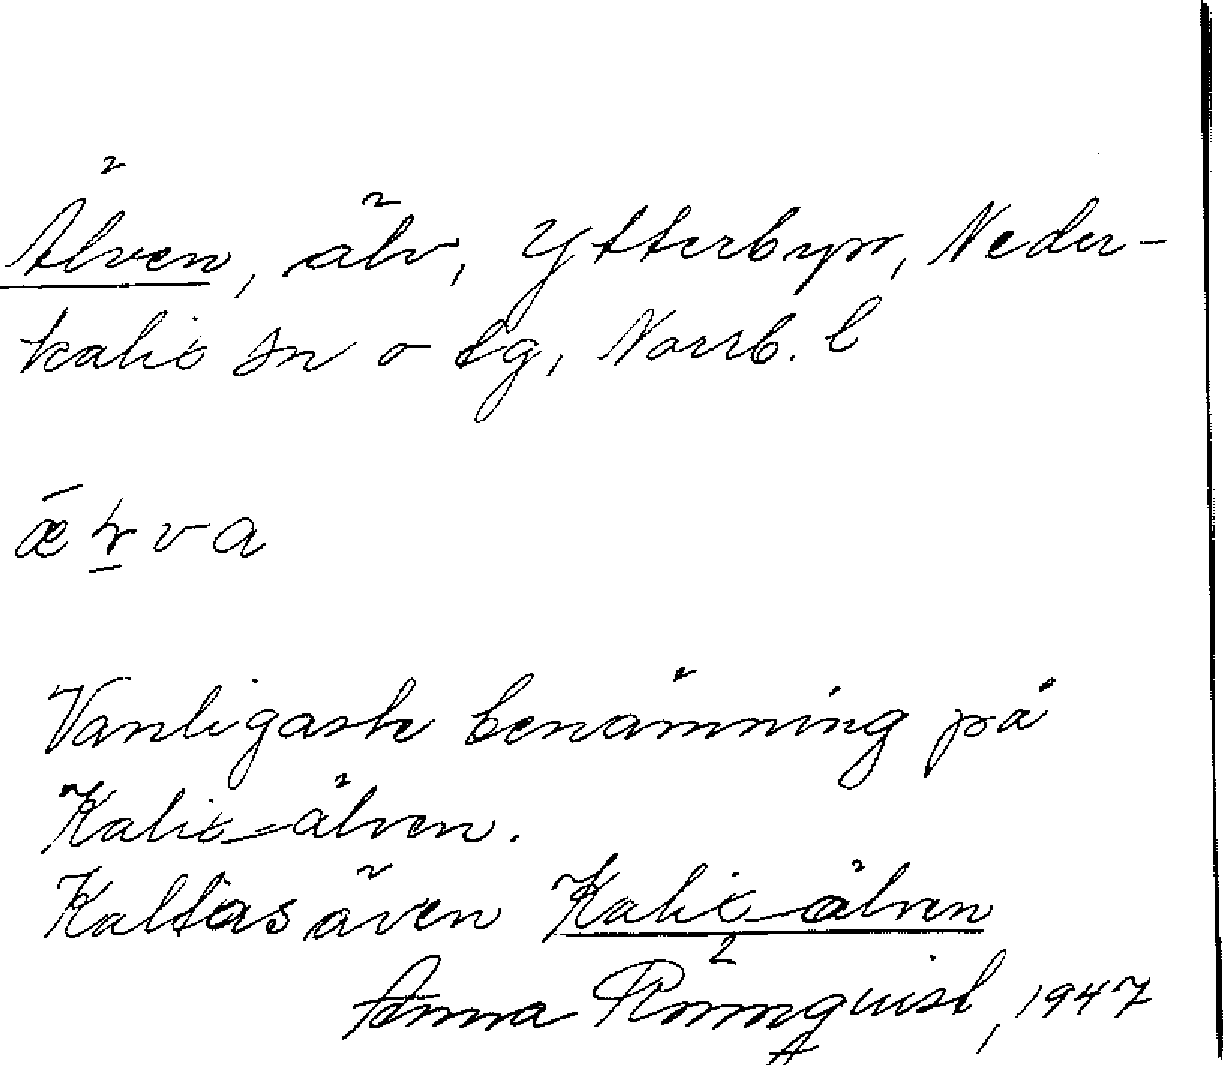 Älven, älv, Ytterbyn, Neder-
kalix sn o lg, Norrb. l
Vanligaste benämning på
Kalix-älven.
Kallas även Kalix-älven
Anna Rönnquist, 1947